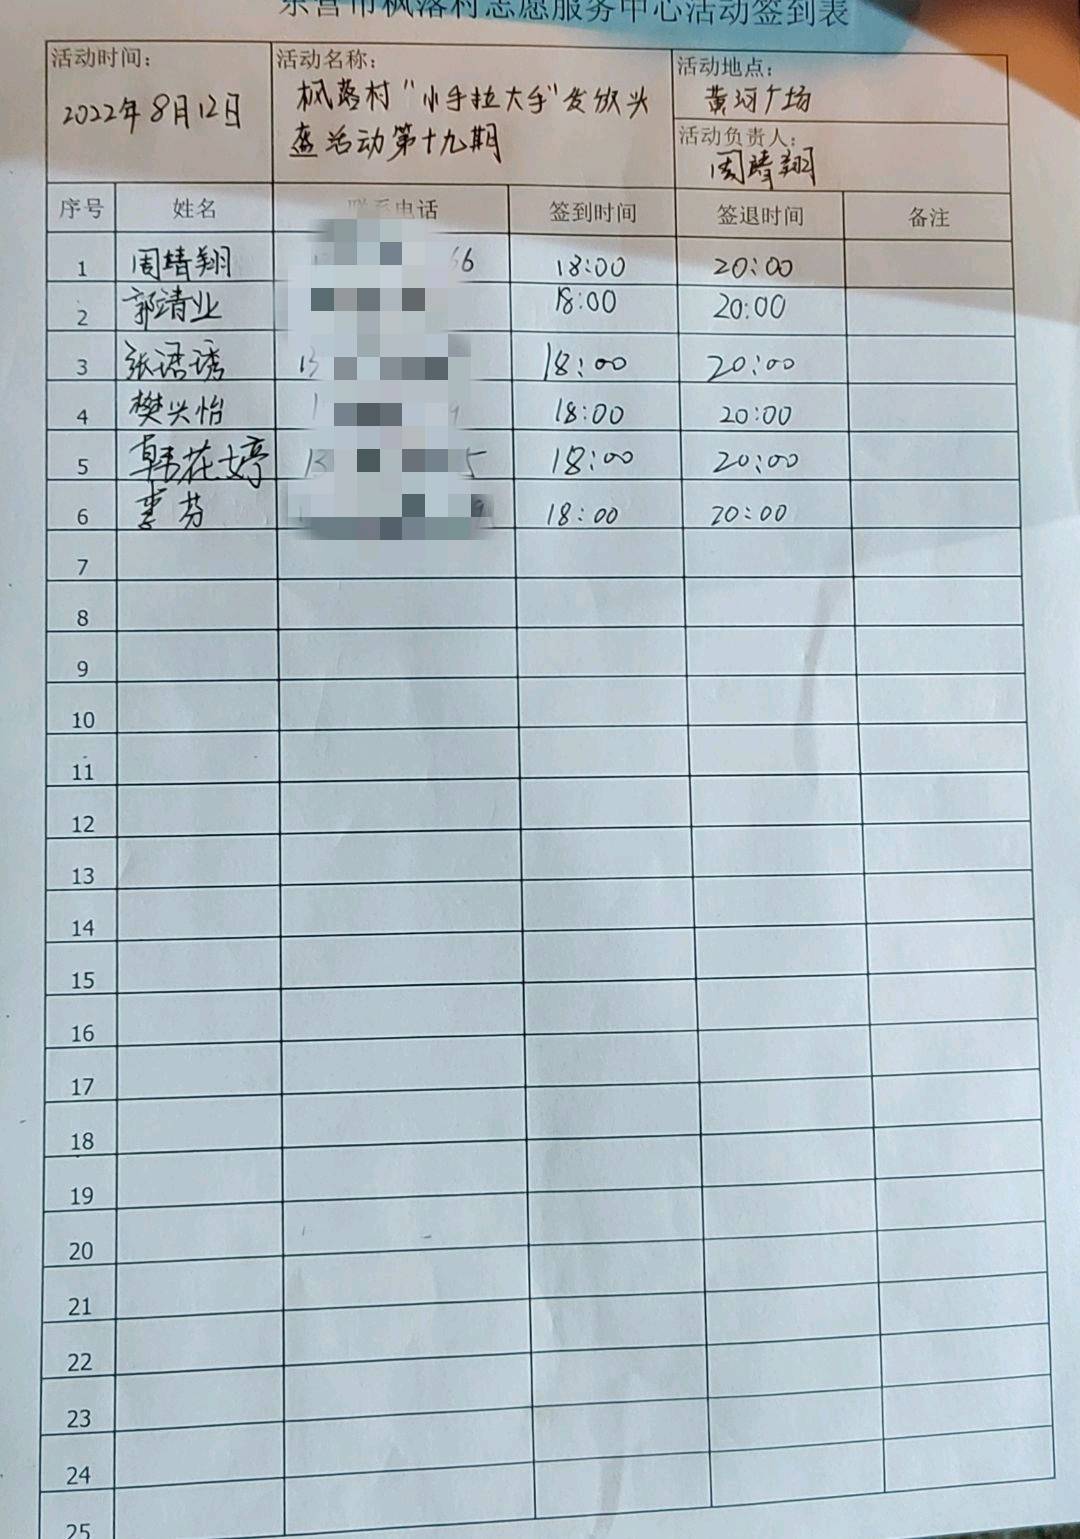 东营市枫落村志愿服务中心活动签到表
活动时间： 活动名称： 活动地点：
2022年8月12日 枫落村“小手拉大手”发放头 黄河广场
盔活动第十九期 活动负责人：
周靖翔
序号 姓名 联系电话 签到时间 签退时间 备注
1 周靖翔 66 18:00 20:00
2 郭清业 18:00 20:00
3 张珺琇 13 18:00 20:00
4 樊兴怡 1 18:00 20:00
5 韩花婷 13 5 18:00 20:00
6 李芬 18:00 20:00
7
8
9
10
11
12
13
14
15
16
17
18
19
20
21
22
23
24
25